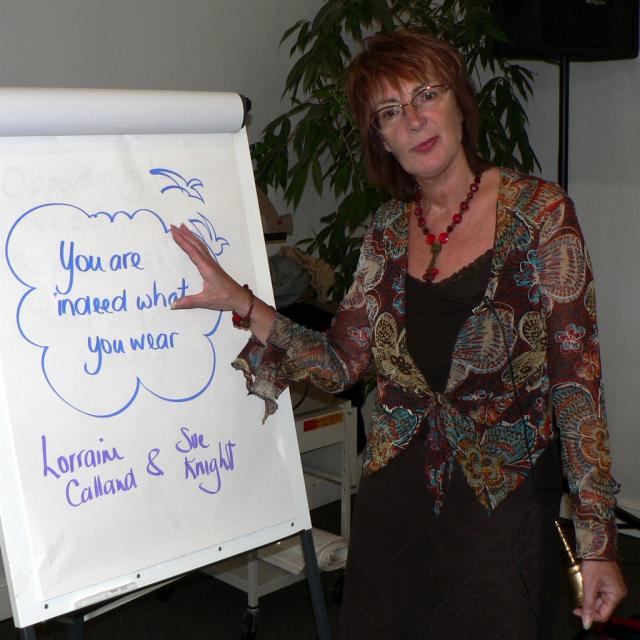 You are
indeed what
you wear
Lorraine & Sue
Calland Knight